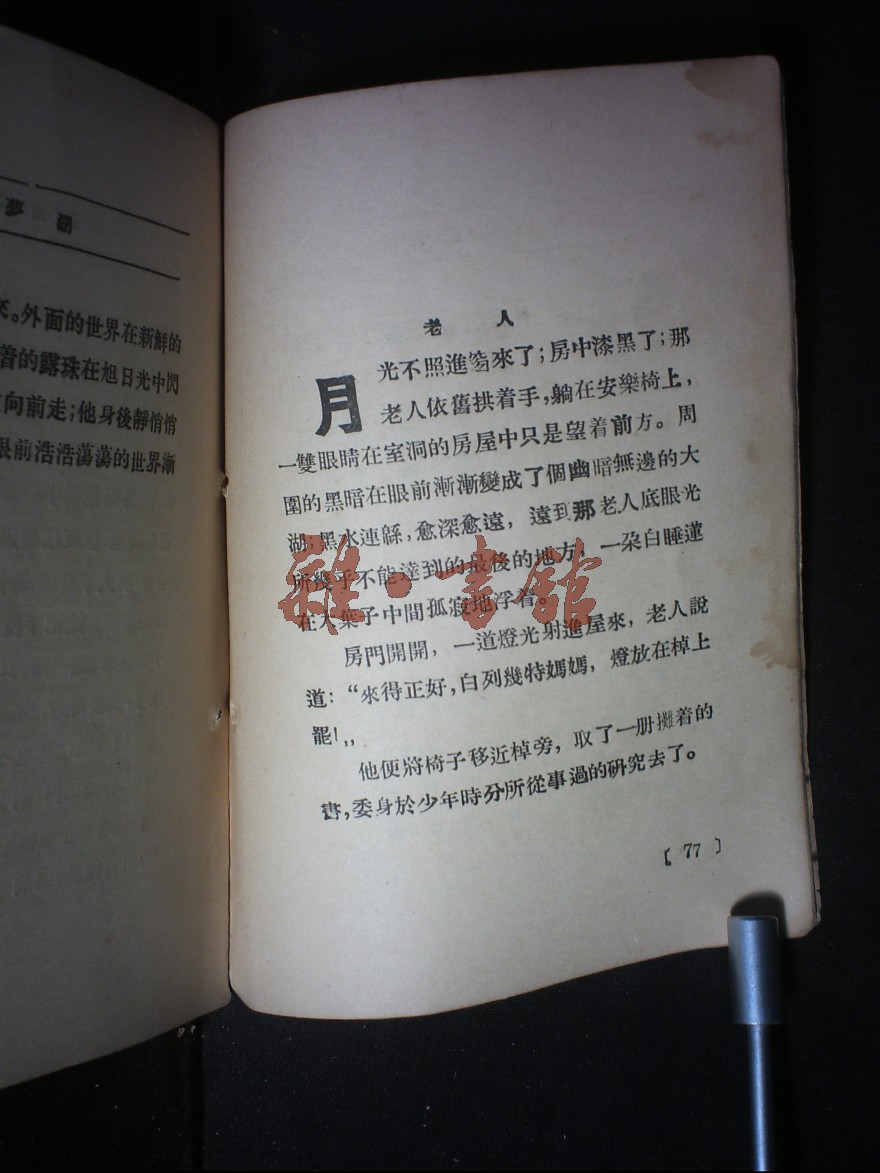 夢湖
來。外面的世界在新鮮的
着的露珠在旭日光中閃
向前走;他身後靜悄悄
眼前浩浩蕩蕩的世界漸
老人
月光不照進窗來了;房中漆黑了;那
老人依舊拱着手,躺在安樂椅上,
一雙眼睛在室洞的房屋中只是望着前方。周
圍的黑暗在眼前漸漸變成了個幽暗無邊的大
湖;黑水連緜,愈深愈遠,遠到那老人底眼光
所幾乎不能達到的最後的地方,一朶白睡蓮
在大葉子中間孤寂地浮着。
房門開開,一道燈光射進屋來,老人說
道:“來得正好,白列幾特媽媽,燈放在棹上
罷!,,
他便將椅子移近棹旁,取了一册攤着的
書,委身於少年時分所從事過的硏究去了。
〔77〕
雜·書館